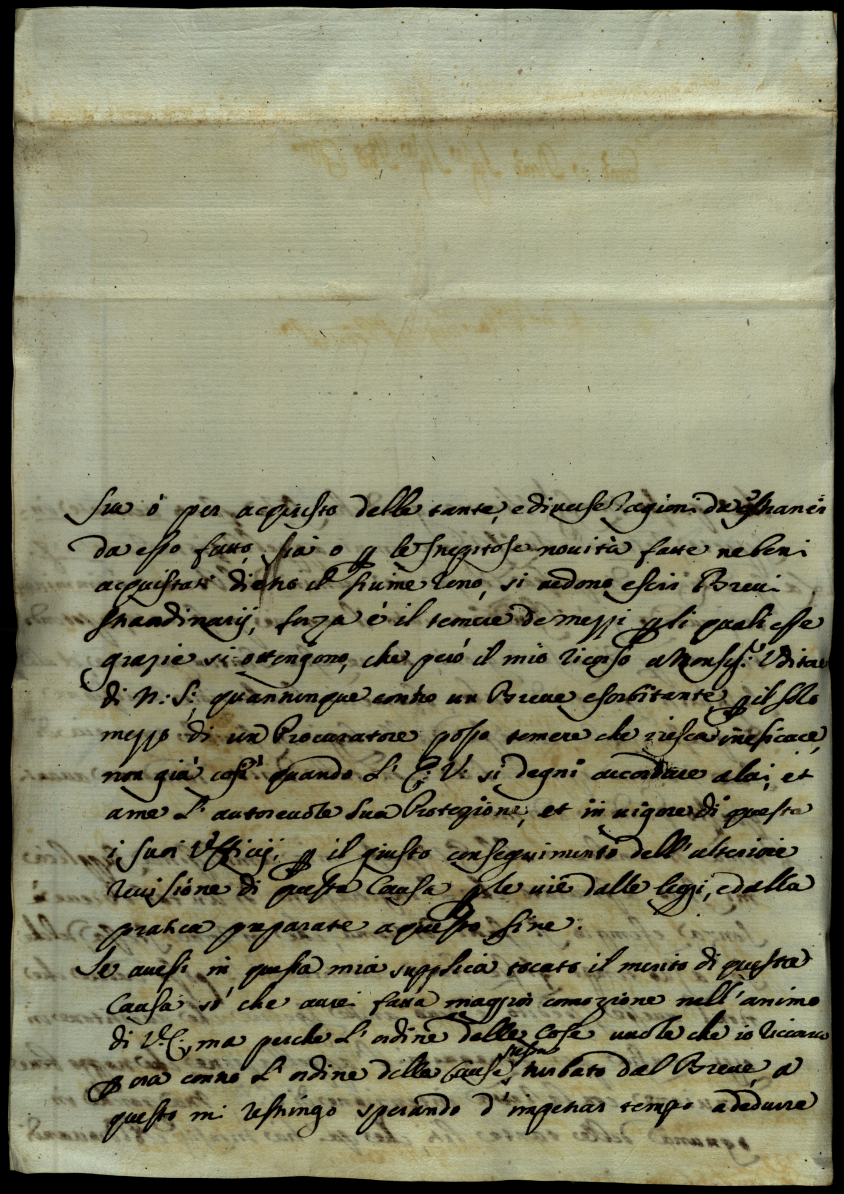 Sue ò per acquisto delle tante, e diverse ragioni da
da esso fatto, sia o p le novità fatte ne beni
acquistati dietro il fiume Reno, si vedono escir Brevi
straordinarij, forza è il temere de mezzi p li quali esse
grazie si ottengono, che però il mio ricorso a Monsig.r Uditore
di N: S: quantunque contro un Breve esorbitante p il solo
mezzo di un Procuratore posso temere che riesca inefficace,
non già così quando L' E: V: si degni accordare a lai, et
a me L' autorevole Sua Protezione, et in vigore di questa
i Suoi Ufficij, p il giusto conseguimento dell' ulteriore
revisione di questa Causa p le vie dalle leggi, e dalla
pratica preparate a questo fine.
Se avesi in questa mia supplica tocato il merito di questa
Causa so' che avrei fatta maggior comozione nell' animo
di V: E:, ma perche L' ordine delle Cose vuole che io riccorra
p ora contro L' ordine della Causa stessa turbato dal Breve, a
questo mi restringo sperando d' impetrar tempo a dedurre